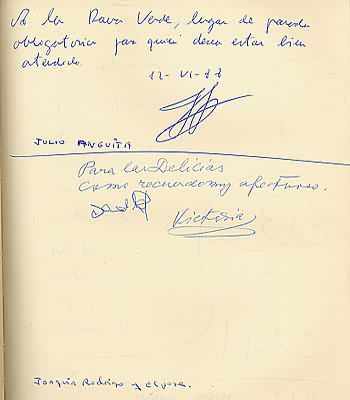 A la Rava Verde, lugar de parada
obligatoria para quien desea estar bien
atendido.
12-VI-88
JULIO ANGUITA
Para las Delicias
como recuerdo muy afectuoso.
Victoria
Joaquín Rodrigo y esposa.